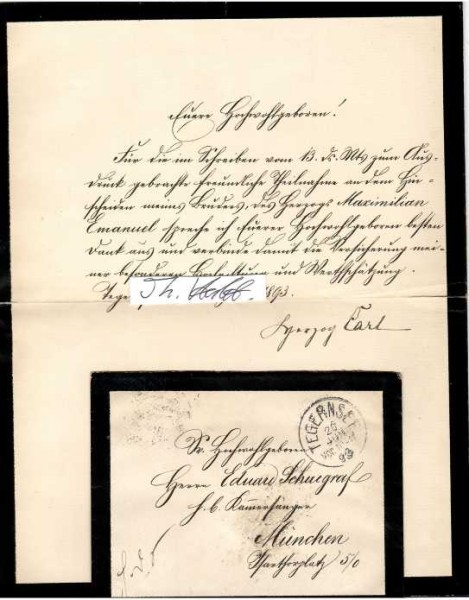 Euere Hochwohlgeboren!
Für die im Schreiben vom 13. ds. Mts zum Aus-
druck gebrachte freundliche Theilnahme an dem Hin-
scheiden meines Bruders, des Herzogs Maximilian
Emanuel spreche ich Euerer Hochwohlgeboren besten
Dank aus und verbinde damit die Versicherung mei-
ner besonderen und Werthschätzung.
1893.
Herzog Carl
TEGERNSEE
26
JUN
93
Sr. Hochwohlgeboren
Herrn Eduard Schuegraf
k. b. Kammersänger
München
Isarthorplatz 5/0